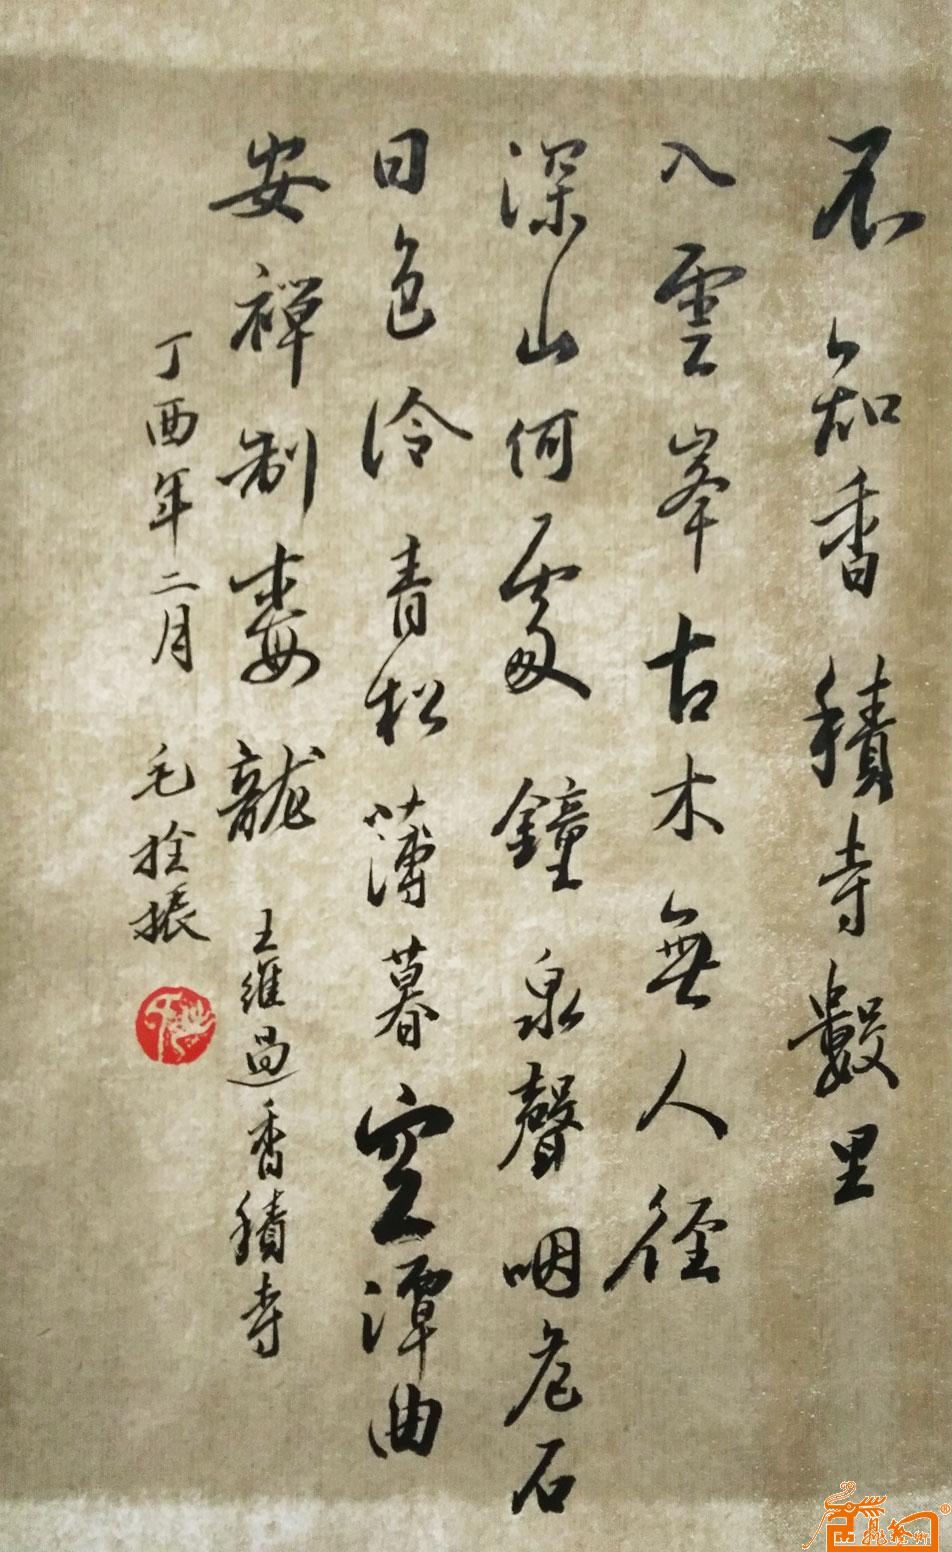 不知香積寺數里
入雲峯古木無人徑
深山何處鐘泉聲咽危石
日色冷青松薄暮空潭曲
安禪制毒龍王維過香積寺
丁酉年二月毛拴振